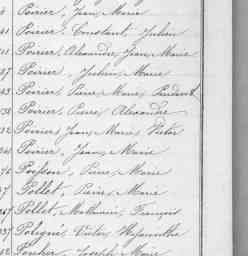 Poirier, Jean Marie
Poirier, Constant, Julien
Poirier, Alexandre, Jean, Marie
Poirier, Julien, Marie
Poirier, Pierre, Marie, Prudent
Poirier, Pierre, Alexandre
Poirier, Jean, Marie, Victor
Poirier, Jean, Marie
Poisson, Pierre, Marie
Pollet, Pierre, Marie
Pollet, Mathurin, François
Poligné, Victor, Hyacinthe
Porcher, Joseph, Marie